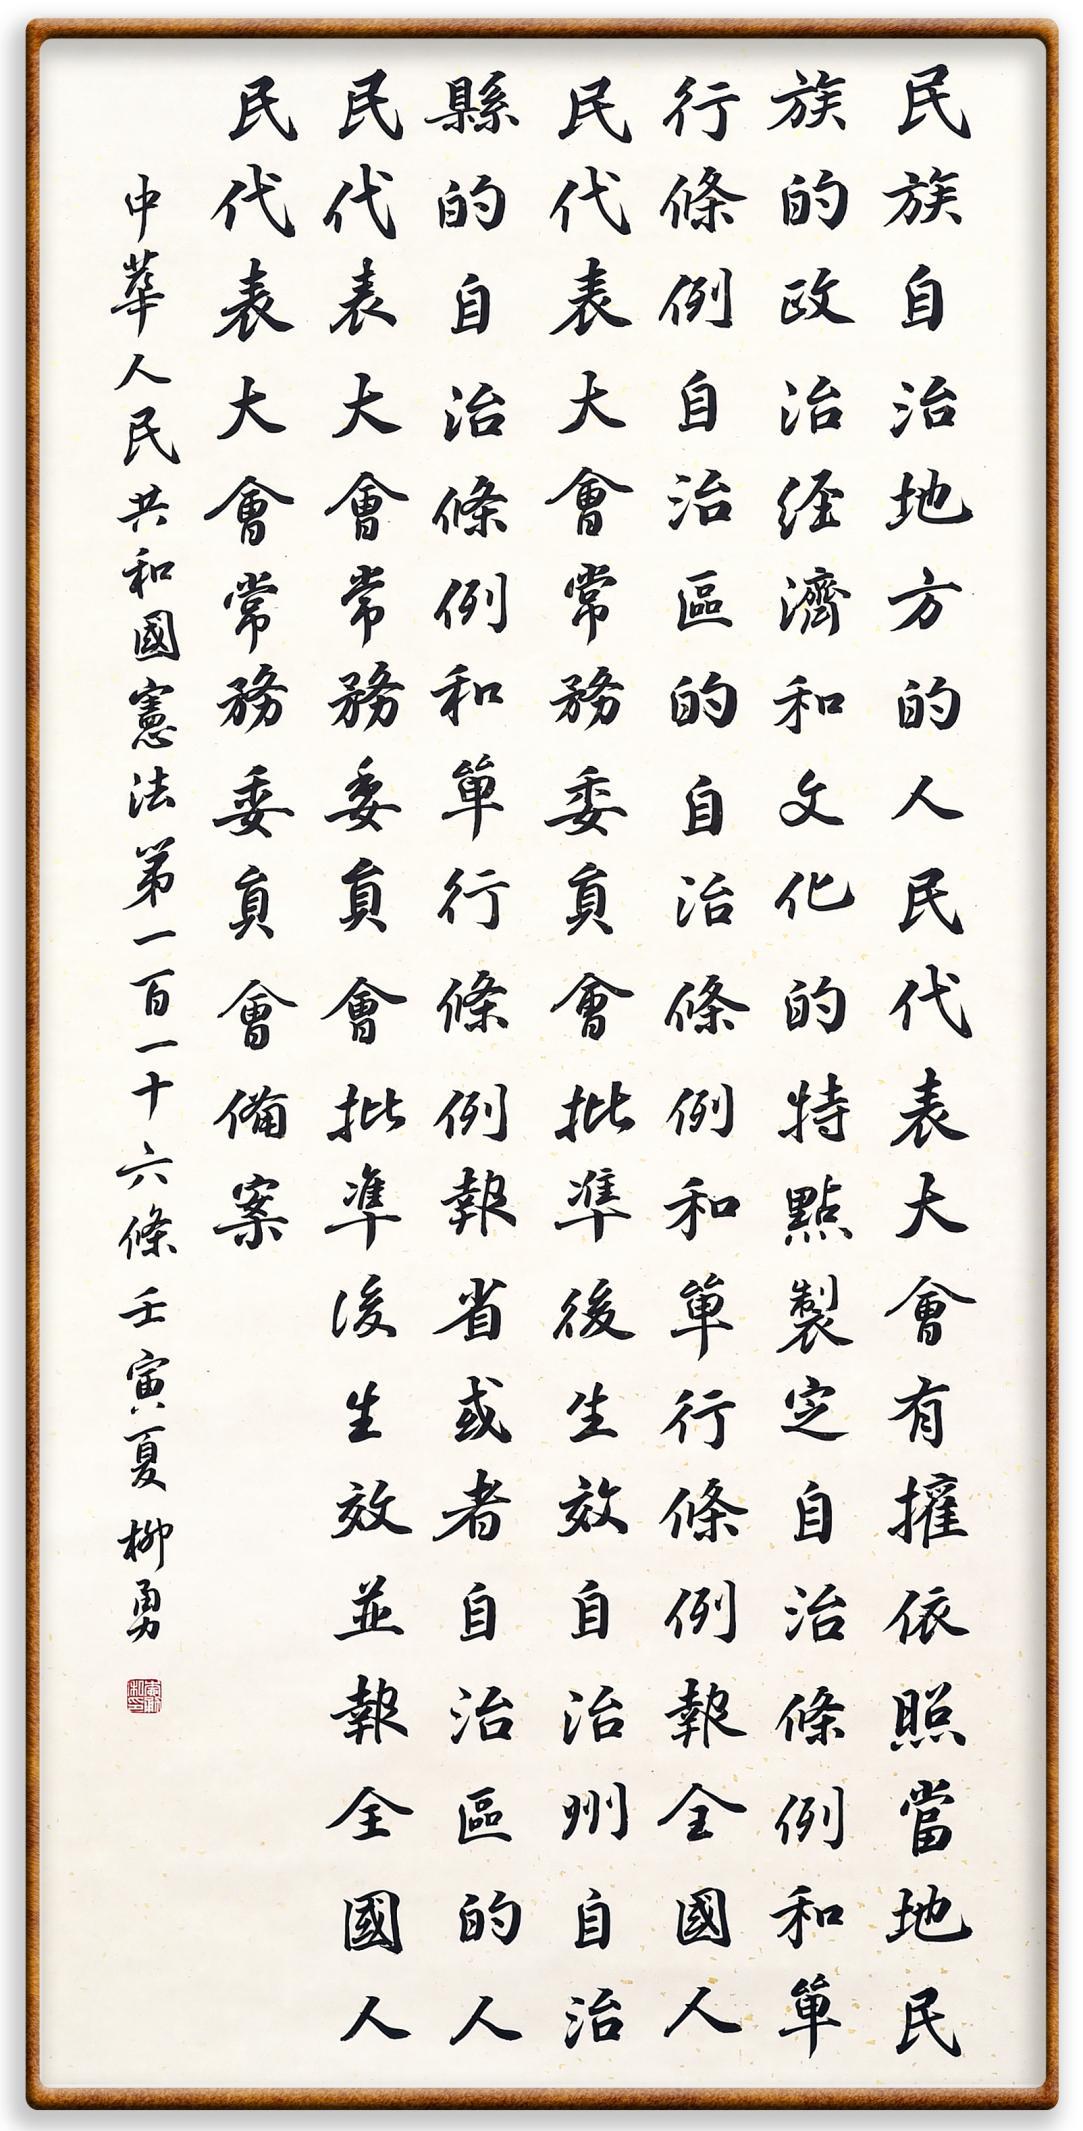 民族自治地方的人民代表大會有擁依照當地民
族的政治經濟和文化的特點製定自治條例和單
行條例自治區的自治條例和單行條例報全國人
民代表大會常務委員會批準後生效自治州自治
縣的自治條例和單行條例報省或者自治區的人
民代表大會常務委員會批準後生效並報全國人
民代表大會常務委員會備案
中華人民共和國憲法第一百一十六條壬寅夏柳勇